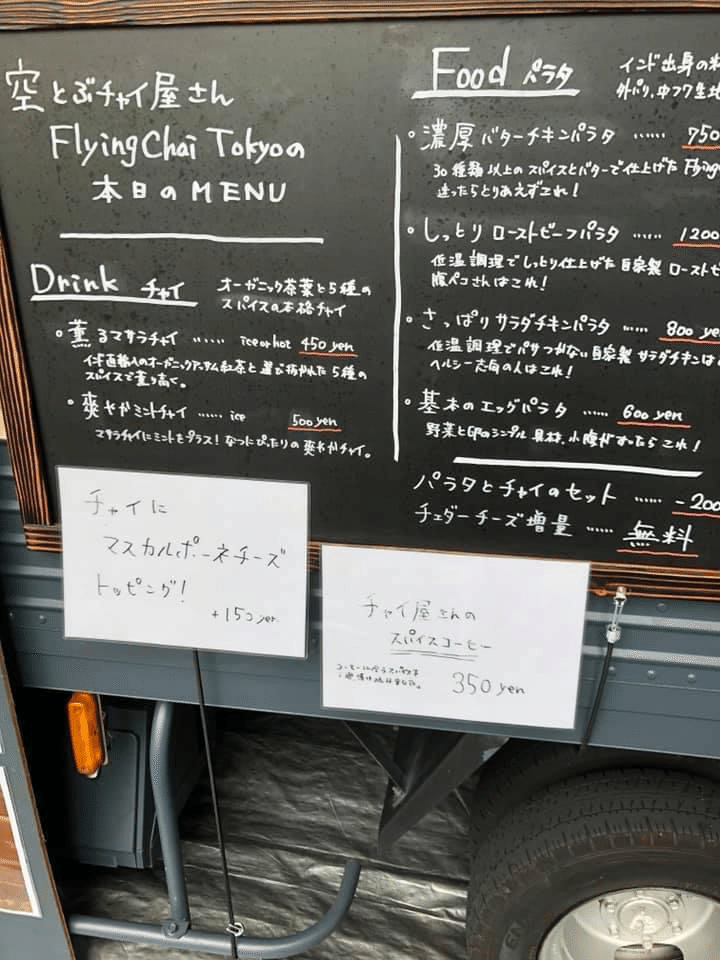 空とぶチャイ屋さん
FlyingChai Tokyoの
本日のMENU
Drink チャイ
オーガニック茶葉と5種の
スパイスの本格チャイ
薫るマサラチャイ …… ice or hot 450 yen
インド直輸入のオーガニックアッサム紅茶と選び抜かれた5種の
スパイスで薫り高く。
爽やかミントチャイ …… ice 500 yen
マサラチャイにミントをプラス!なつにぴったりの爽やかチャイ。
Food パラタ
インド出身の
外パリ、中フワ生地
濃厚バターチキンパラタ …… 750
30種類以上のスパイスとバターで仕上げた Flying
迷ったらとりあえずこれ!
しっとりローストビーフパラタ …… 1200
低温調理でしっとり仕上げた自家製ロースト
腹ペコさんはこれ!
さっぱりサラダチキンパラタ …… 800 yen
低温調理でパサつかない自家製サラダチキンは
ヘルシー志向の人はこれ!
基本のエッグパラタ …… 600 yen
野菜と卵のシンプル具材、小腹がすいたらこれ!
パラタとチャイのセット …… -200
チェダーチーズ増量 …… 無料
チャイに
マスカルポーネチーズ
トッピング!
+150 yen
チャイ屋さんの
スパイスコーヒー
コーヒーに合うスパイスを
350 yen